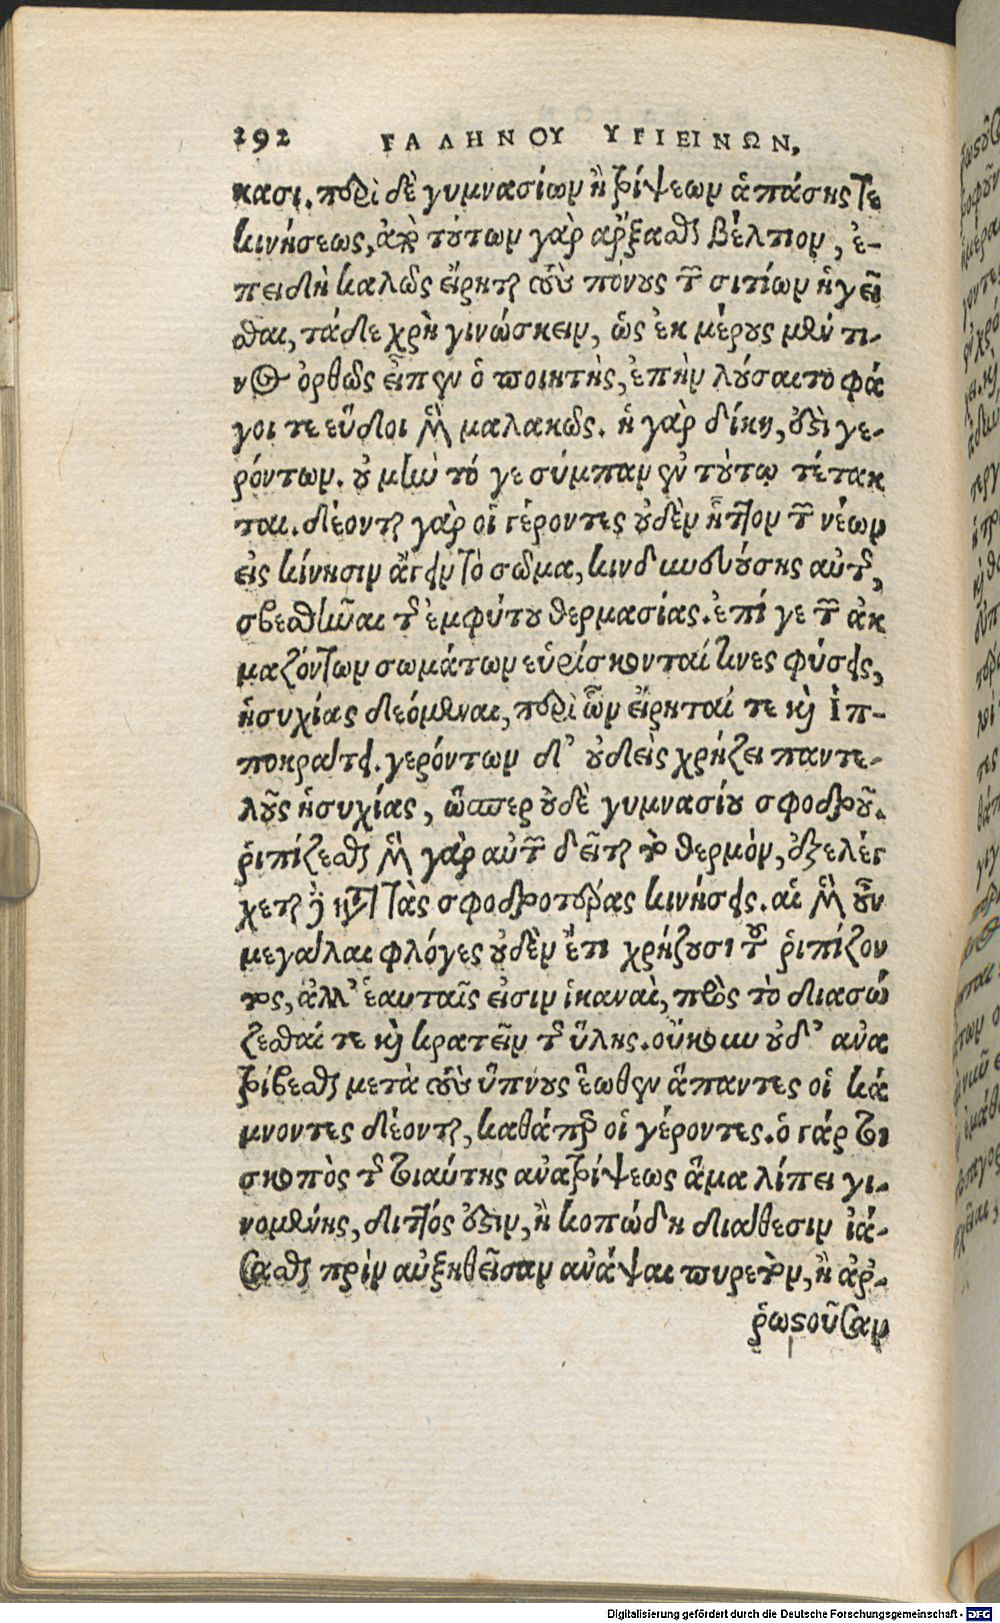 292 ΓΑΛΗΝΟΥ ΥΓΙΕΙΝΩΝ,
κασι. περὶ δὲ γυμνασίων ἢ τρίψεων ἁπάσης τε
κινήσεως, ἀπὸ τούτων γὰρ ἄρξασθαι βέλτιον, ἐ-
πειδὴ καλῶς εἴρηται τοὺς πόνους τῶν σιτίων ἡγεῖ
σθαι, τάδε χρὴ γινώσκειν, ὡς ἐκ μέρους μέν τι-
νος ὀρθῶς εἶπεν ὁ ποιητὴς, ἐπὴν λούσαιτο φά
γοι τε εὕδοι δὲ μαλακῶς. ἡ γὰρ δίκη, ἐστὶ γε-
ρόντων. οὐ μὴν τό γε σύμπαν ἐν τούτῳ τέτακ
ται. δέονται γὰρ οἱ γέροντες οὐδὲν ἧττον τῶν νέων
εἰς κίνησιν ἄγειν τὸ σῶμα, κινδυνευούσης αὐτοῖς,
σβεσθῆναι τῆς ἐμφύτου θερμασίας. ἐπί γε τῶν ἀκ
μαζόντων σωμάτων εὑρίσκονταί τινες φύσεις,
ἡσυχίας δεόμεναι, περὶ ὧν εἴρηταί τε καὶ Ἱπ-
ποκράτει. γερόντων δ’ οὐδεὶς χρήζει παντε-
λοῦς ἡσυχίας, ὥσπερ οὐδὲ γυμνασίου σφοδροῦ.
ῥιπίζεσθαι μὲν γὰρ αὐτῶν δεῖται τὸ θερμὸν, ἐξελέγ
χεται δὲ κατὰ τὰς σφοδροτέρας κινήσεις. αἱ μὲν οὖν
μεγάλαι φλόγες οὐδὲν ἔτι χρήζουσι τοῦ ῥιπίζον
τος, ἀλλ’ ἑαυταῖς εἰσιν ἱκαναὶ, πρὸς τὸ διασώ
ζεσθαί τε καὶ κρατεῖν τῆς ὕλης. οὔκουν οὐδ’ ἀνα
τρίβεσθαι μετὰ τοὺς ὕπνους ἕωθεν ἅπαντες οἱ κά
μνοντες δέονται, καθάπερ οἱ γέροντες. ὁ γάρ τοι
σκοπὸς τῆς τοιαύτης ἀνατρίψεως ἅμα λίπει γι-
νομένης, διττός ἐστιν, ἢ κοπώδη διάθεσιν ἰά-
σασθαι πρὶν αὐξηθεῖσαν ἀνάψαι πυρετὸν, ἢ ἀῤ-
ῥωστοῦσαν
Digitalisierung gefördert durch die Deutsche Forschungsgemeinschaft - DFG